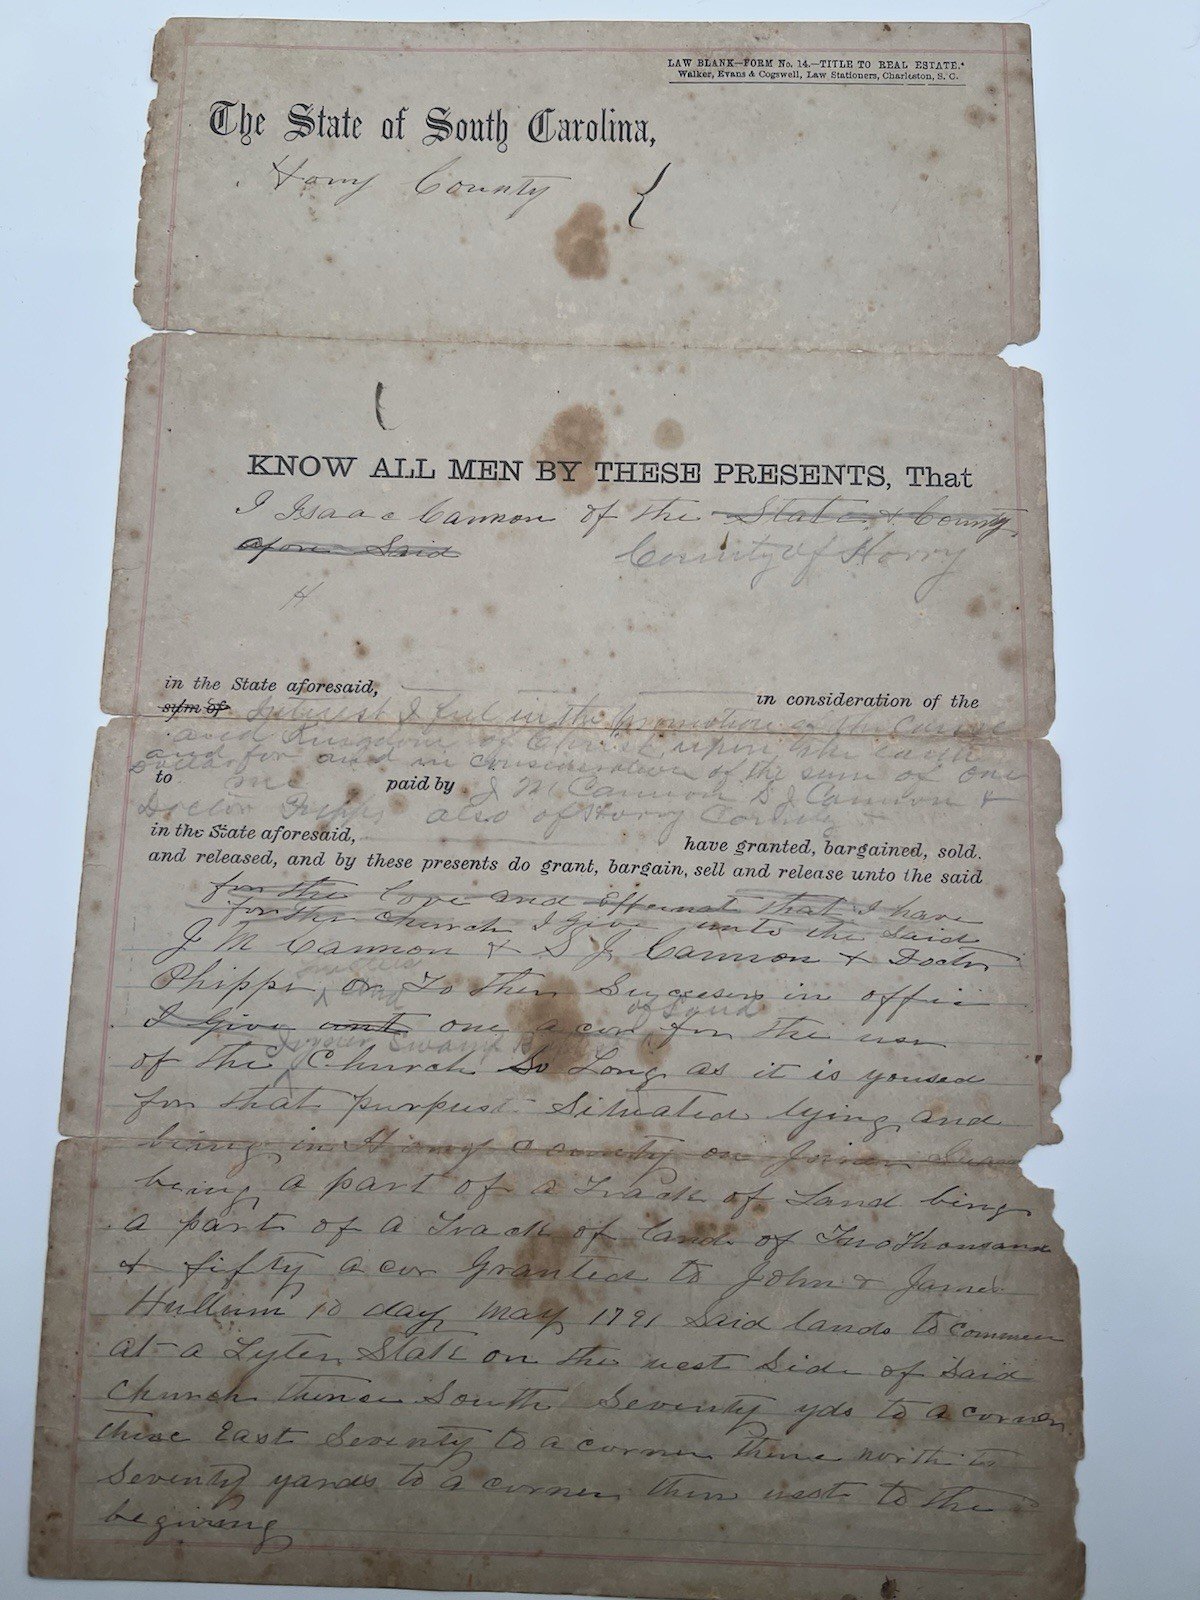 LAW BLANK—FORM No. 14.—TITLE TO REAL ESTATE.
Walker, Evans & Cogswell, Law Stationers, Charleston, S. C.
The State of South Carolina,
Horry County
KNOW ALL MEN BY THESE PRESENTS, That
I Isaac Cannon of the State & County
afore Said
County of Horry
H
in the State aforesaid, in consideration of the
sum of Interest I feel in the promotion of the Cause
and Kingdom of Christ upon the earth
and for and in consideration of the sum of one
Dollar
to me paid by J M Cannon S J Cannon &
Doctor Phipps also of Horry County
in the State aforesaid, have granted, bargained, sold.
and released, and by these presents do grant, bargain, sell and release unto the said
for the Love and that I have
for the Church I Give unto the Said
J M Cannon & S J Cannon & Doctor
Phipps or To their Successors in offic
I Give unto one acor of Land for the use
of the Swamp Baptist Church So Long as it is yoused
for that purpust Situated lying and
being in Horry County on
being a part of a Track of Land being
a part of a Track of land of Two Thousand
& fifty acor Granted to John & James
Hullum 10 day May 1791 Said lands to commen
at a Lyten Stak on the west Side of Said
Church thence South Seventy yds to a corner
thenc East Seventy to a corner thence north to
Seventy yards to a corner then west to the
begining